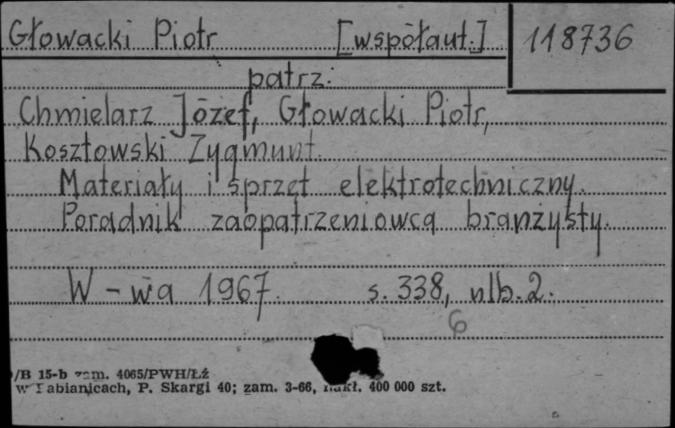 Głowacki Piotr [współaut.] 118736
patrz:
Chmielarz Józef, Głowacki Piotr,
Kosztowski Zygmunt.
Materiały i sprzęt elektrotechniczny.
Poradnik zaopatrzeniowca branżysty.
W-wa 1967. s. 338, nlb. 2.
6
/B 15-b zam. 4065/PWH/Łź
w Pabianicach, P. Skargi 40; zam. 3-66, nakł. 400 000 szt.